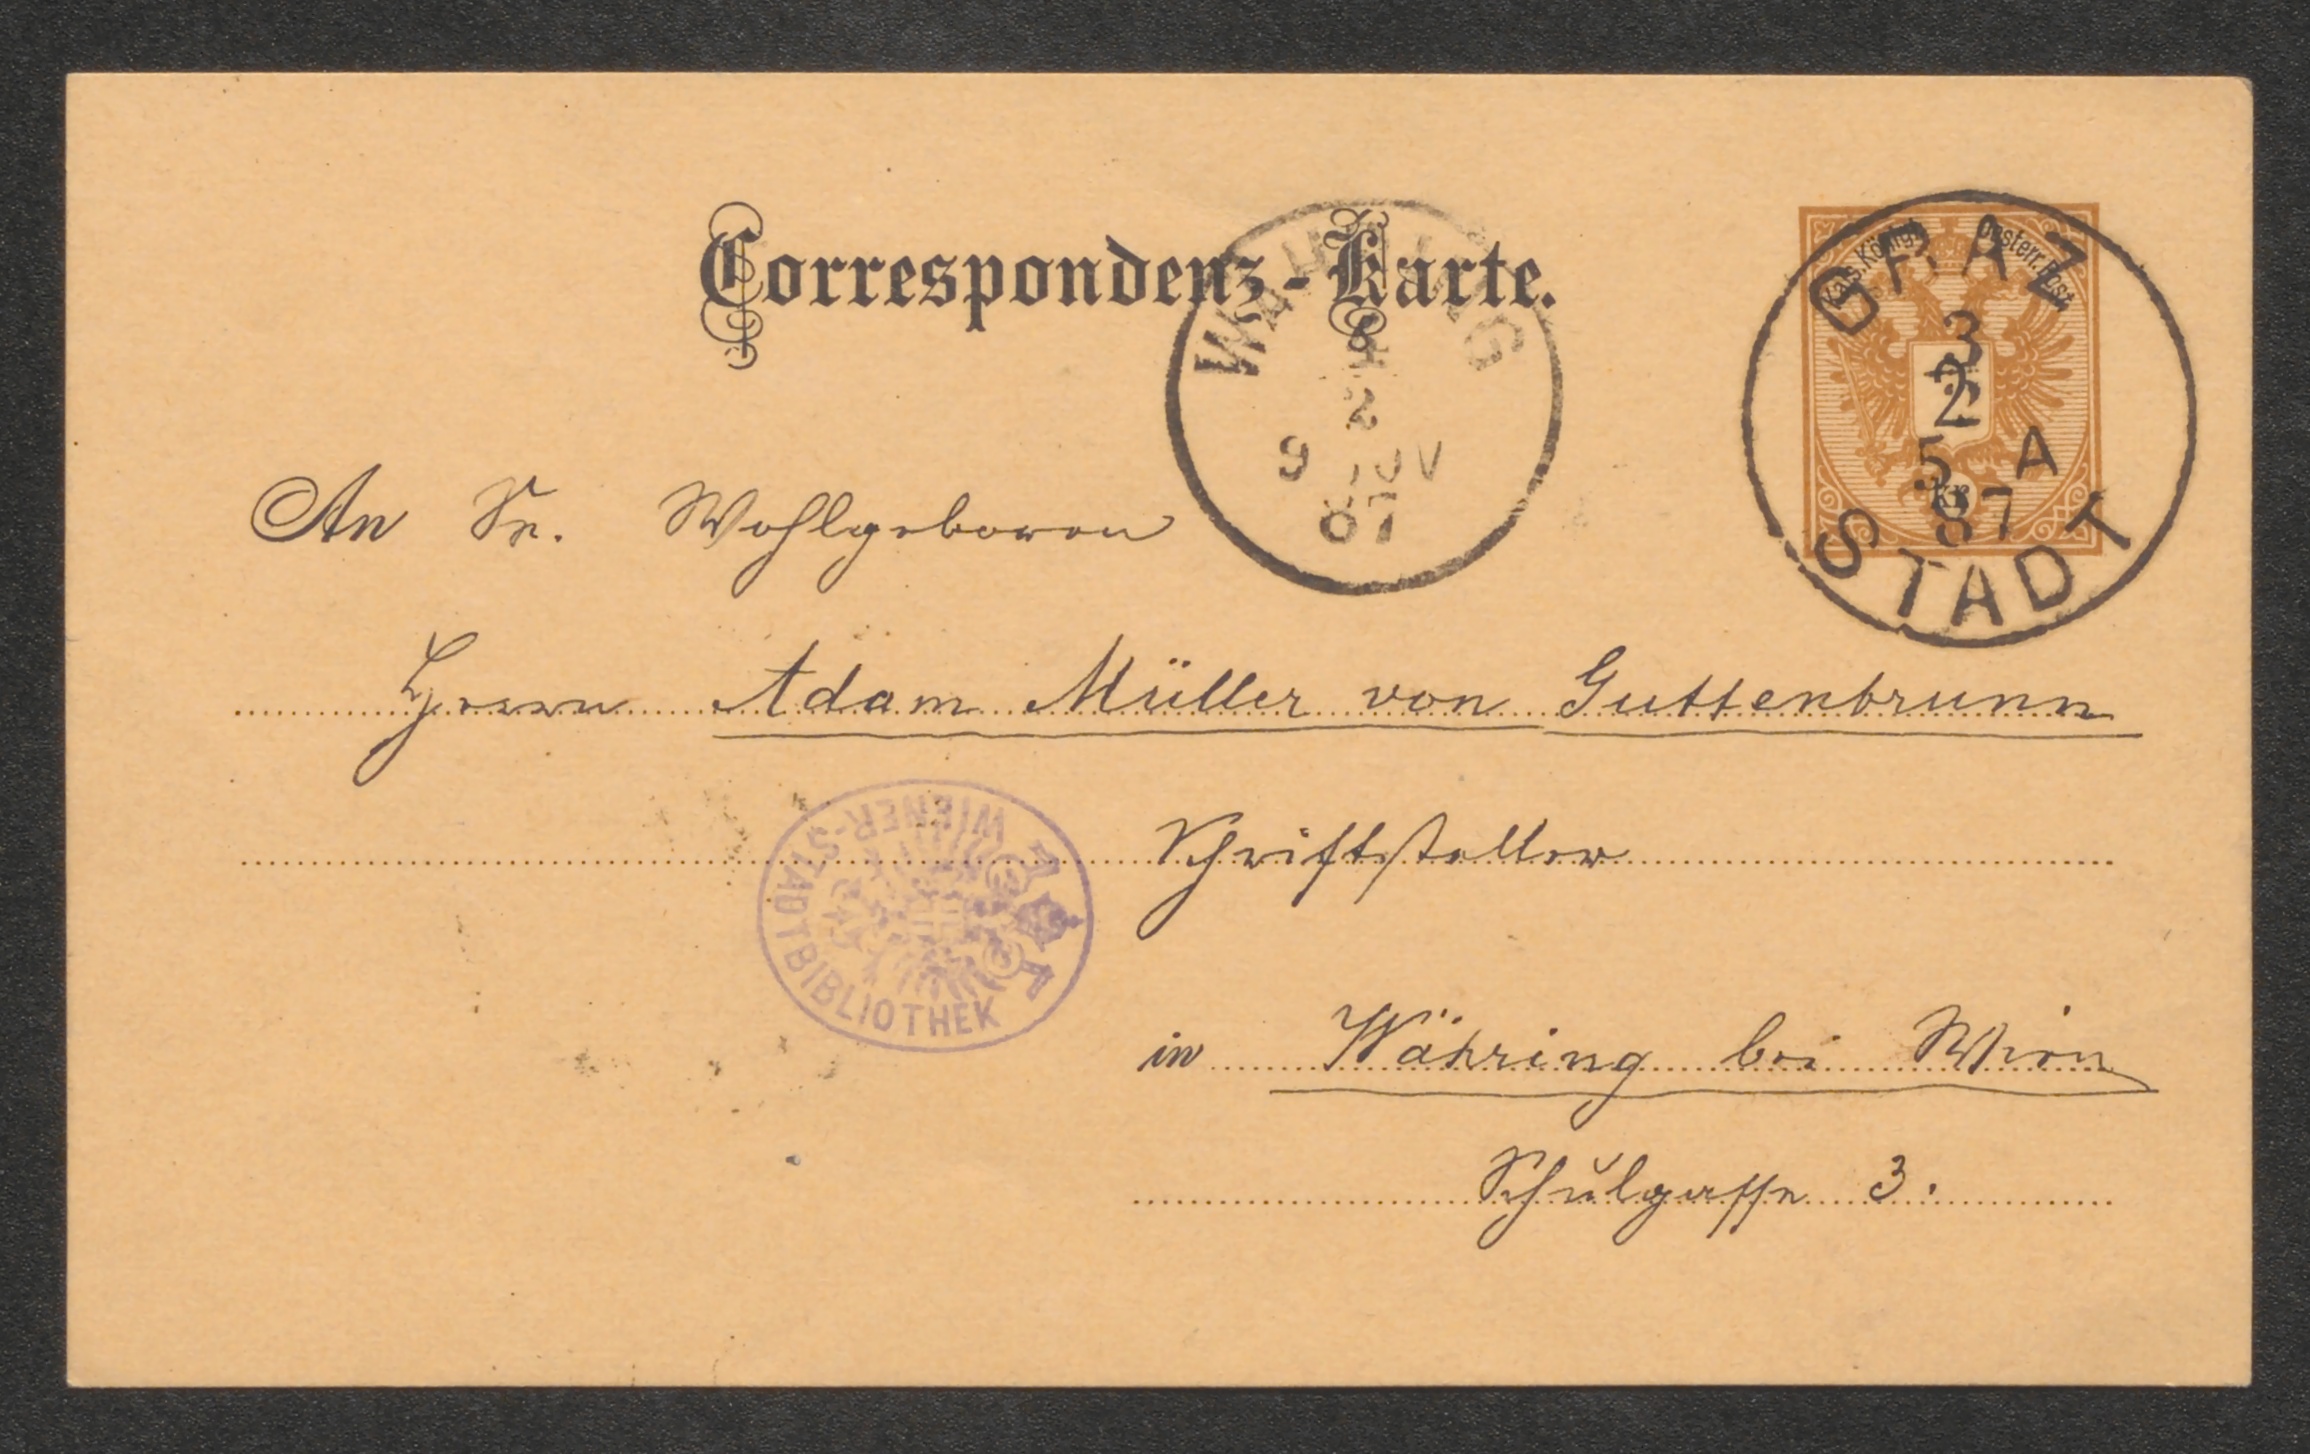 Correspondenz-Karte.
WÄHRING
4
2
9 V
87
Kais. Königl. oesterr. Post
2 kr
GRAZ
3
2
5 A
87
STADT
An Sr. Wohlgeboren
Herrn Adam Müller von Guttenbrunn
WIENER-STADTBIBLIOTHEK
Schriftsteller
in Währing bei Wien
Schulgasse 3.